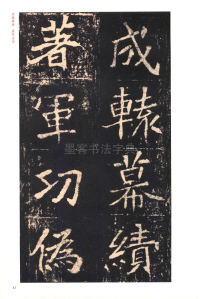 成轅幕績
著軍功偽
墨客书法字典